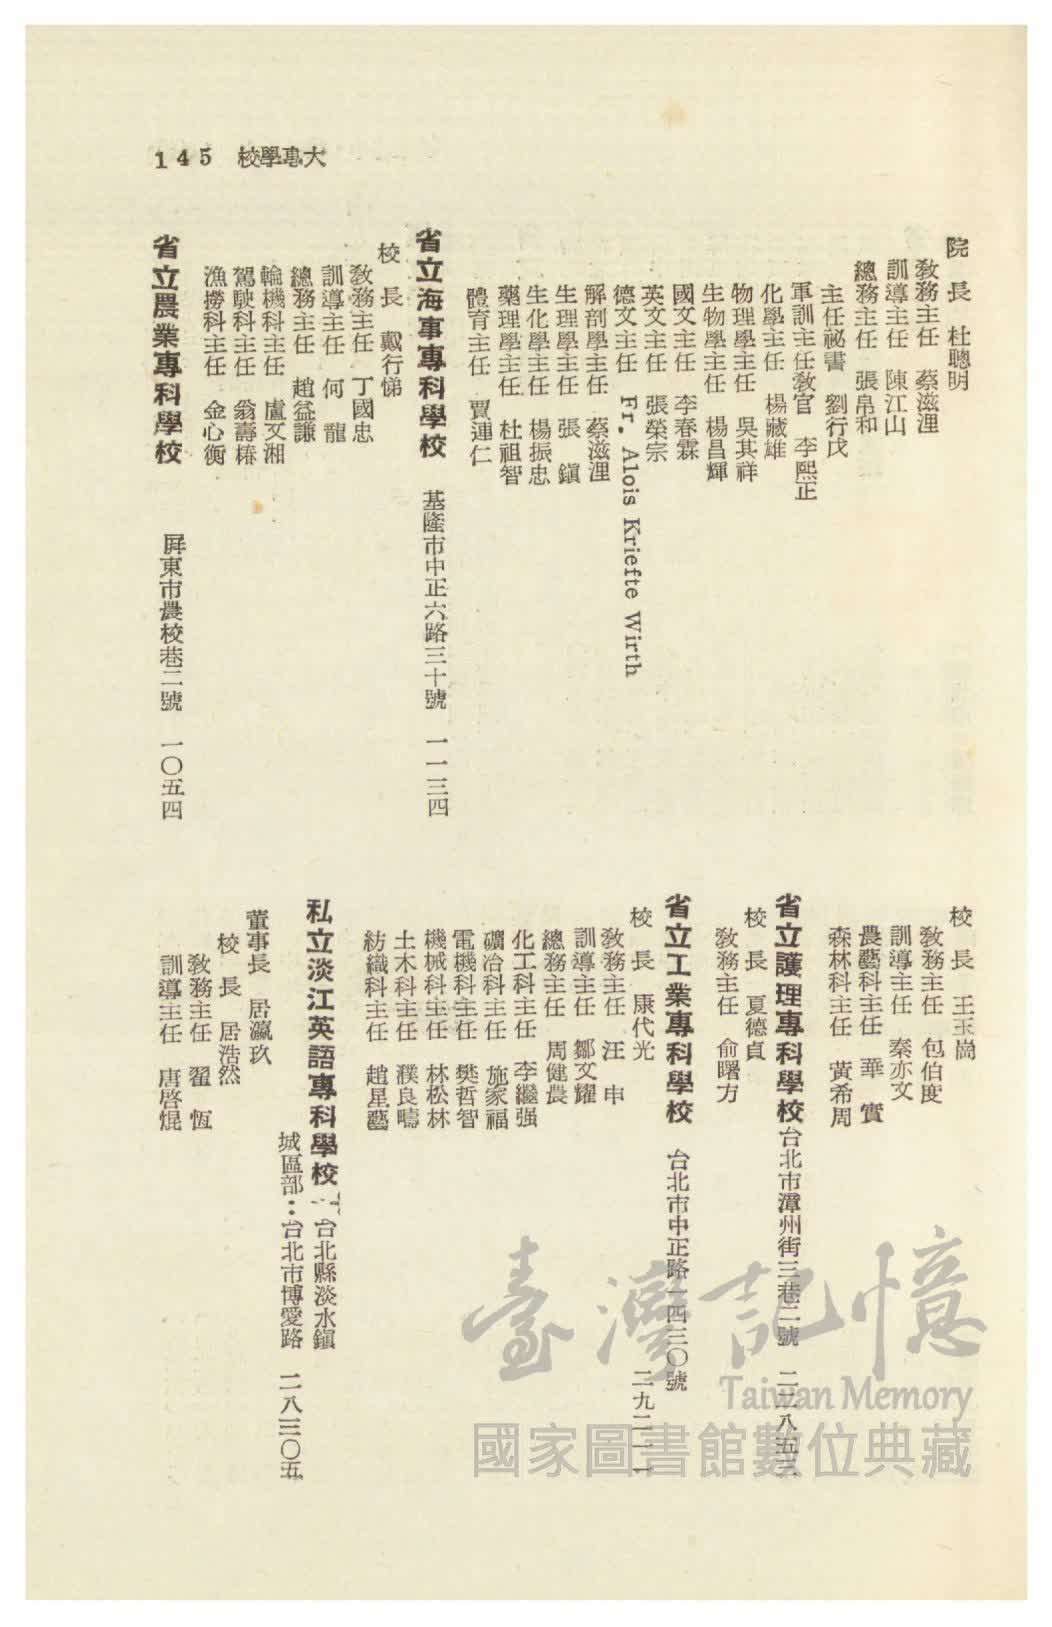 145 校學專大
院長 杜聰明
教務主任 蔡滋浬
訓導主任 陳江山
總務主任 張帛和
主任祕書 劉行戊
軍訓主任教官 李熙正
化學主任 楊藏雄
物理學主任 吳其祥
生物學主任 楊昌輝
國文主任 李春霖
英文主任 張榮宗
德文主任 Fr. Alois Kriefte Wirth
解剖學主任 蔡滋浬
生理學主任 張鎮
生化學主任 楊振忠
藥理學主任 杜祖智
體育主任 賈連仁
省立海事專科學校 基隆市中正六路三十號 一一三四
校長 戴行悌
教務主任 丁國忠
訓導主任 何龍
總務主任 趙益謙
輪機科主任 盧文湘
駕駛科主任 翁壽椿
漁撈科主任 金心衡
省立農業專科學校 屏東市農校巷二號 一〇五四
校長 王玉崗
教務主任 包伯度
訓導主任 秦亦文
農藝科主任 華實
森林科主任 黃希周
省立護理專科學校 台北市潭州街三巷二號 二二八五三
校長 夏德貞
教務主任 俞曙方
省立工業專科學校 台北市中正路一四三〇號
二九二一一
校長 康代光
教務主任 汪申
訓導主任 鄒文耀
總務主任 周健農
化工科主任 李繼强
礦冶科主任 施家福
電機科主任 樊哲智
機械科主任 林松林
土木科主任 濮良疇
紡織科主任 趙星藝
私立淡江英語專科學校 台北縣淡水鎮
城區部：台北市博愛路 二八三〇五
董事長 居瀛玖
校長 居浩然
教務主任 翟恆
訓導主任 唐啓焜
臺灣記憶
Taiwan Memory
國家圖書館數位典藏